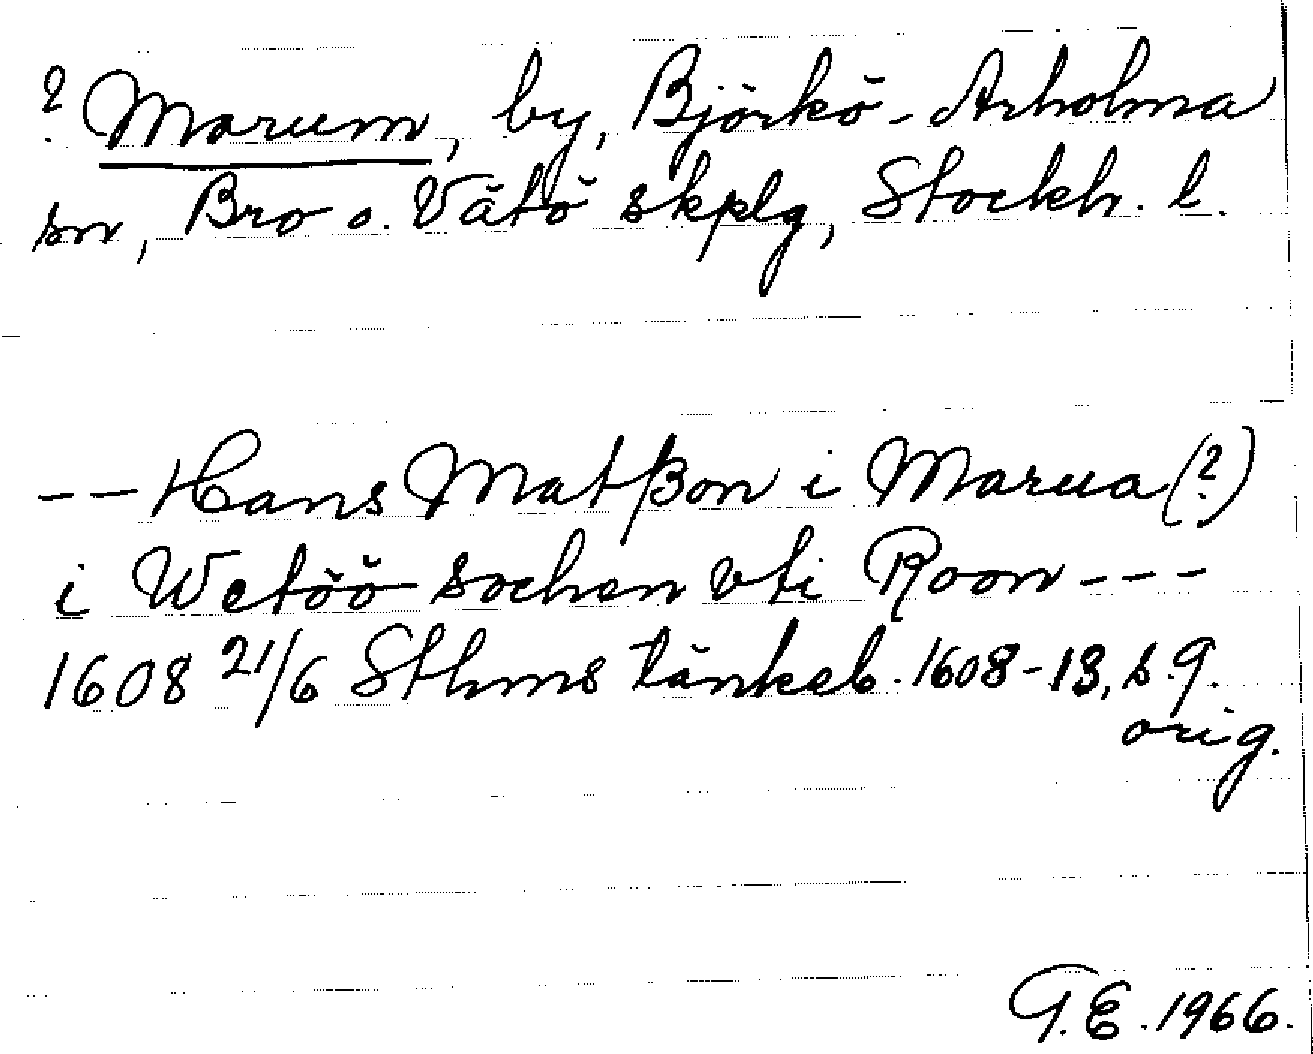 ? Marum, by, Björkö-Arholma
sn, Bro o. Vätö skplg, Stockh. l.
-- Hans Matßon i Marua (?)
i Wetöö sochen vti Roon ---
1608 21/6 Sthms tänkeb. 1608-13, s. 9.
orig.
G.E. 1966.